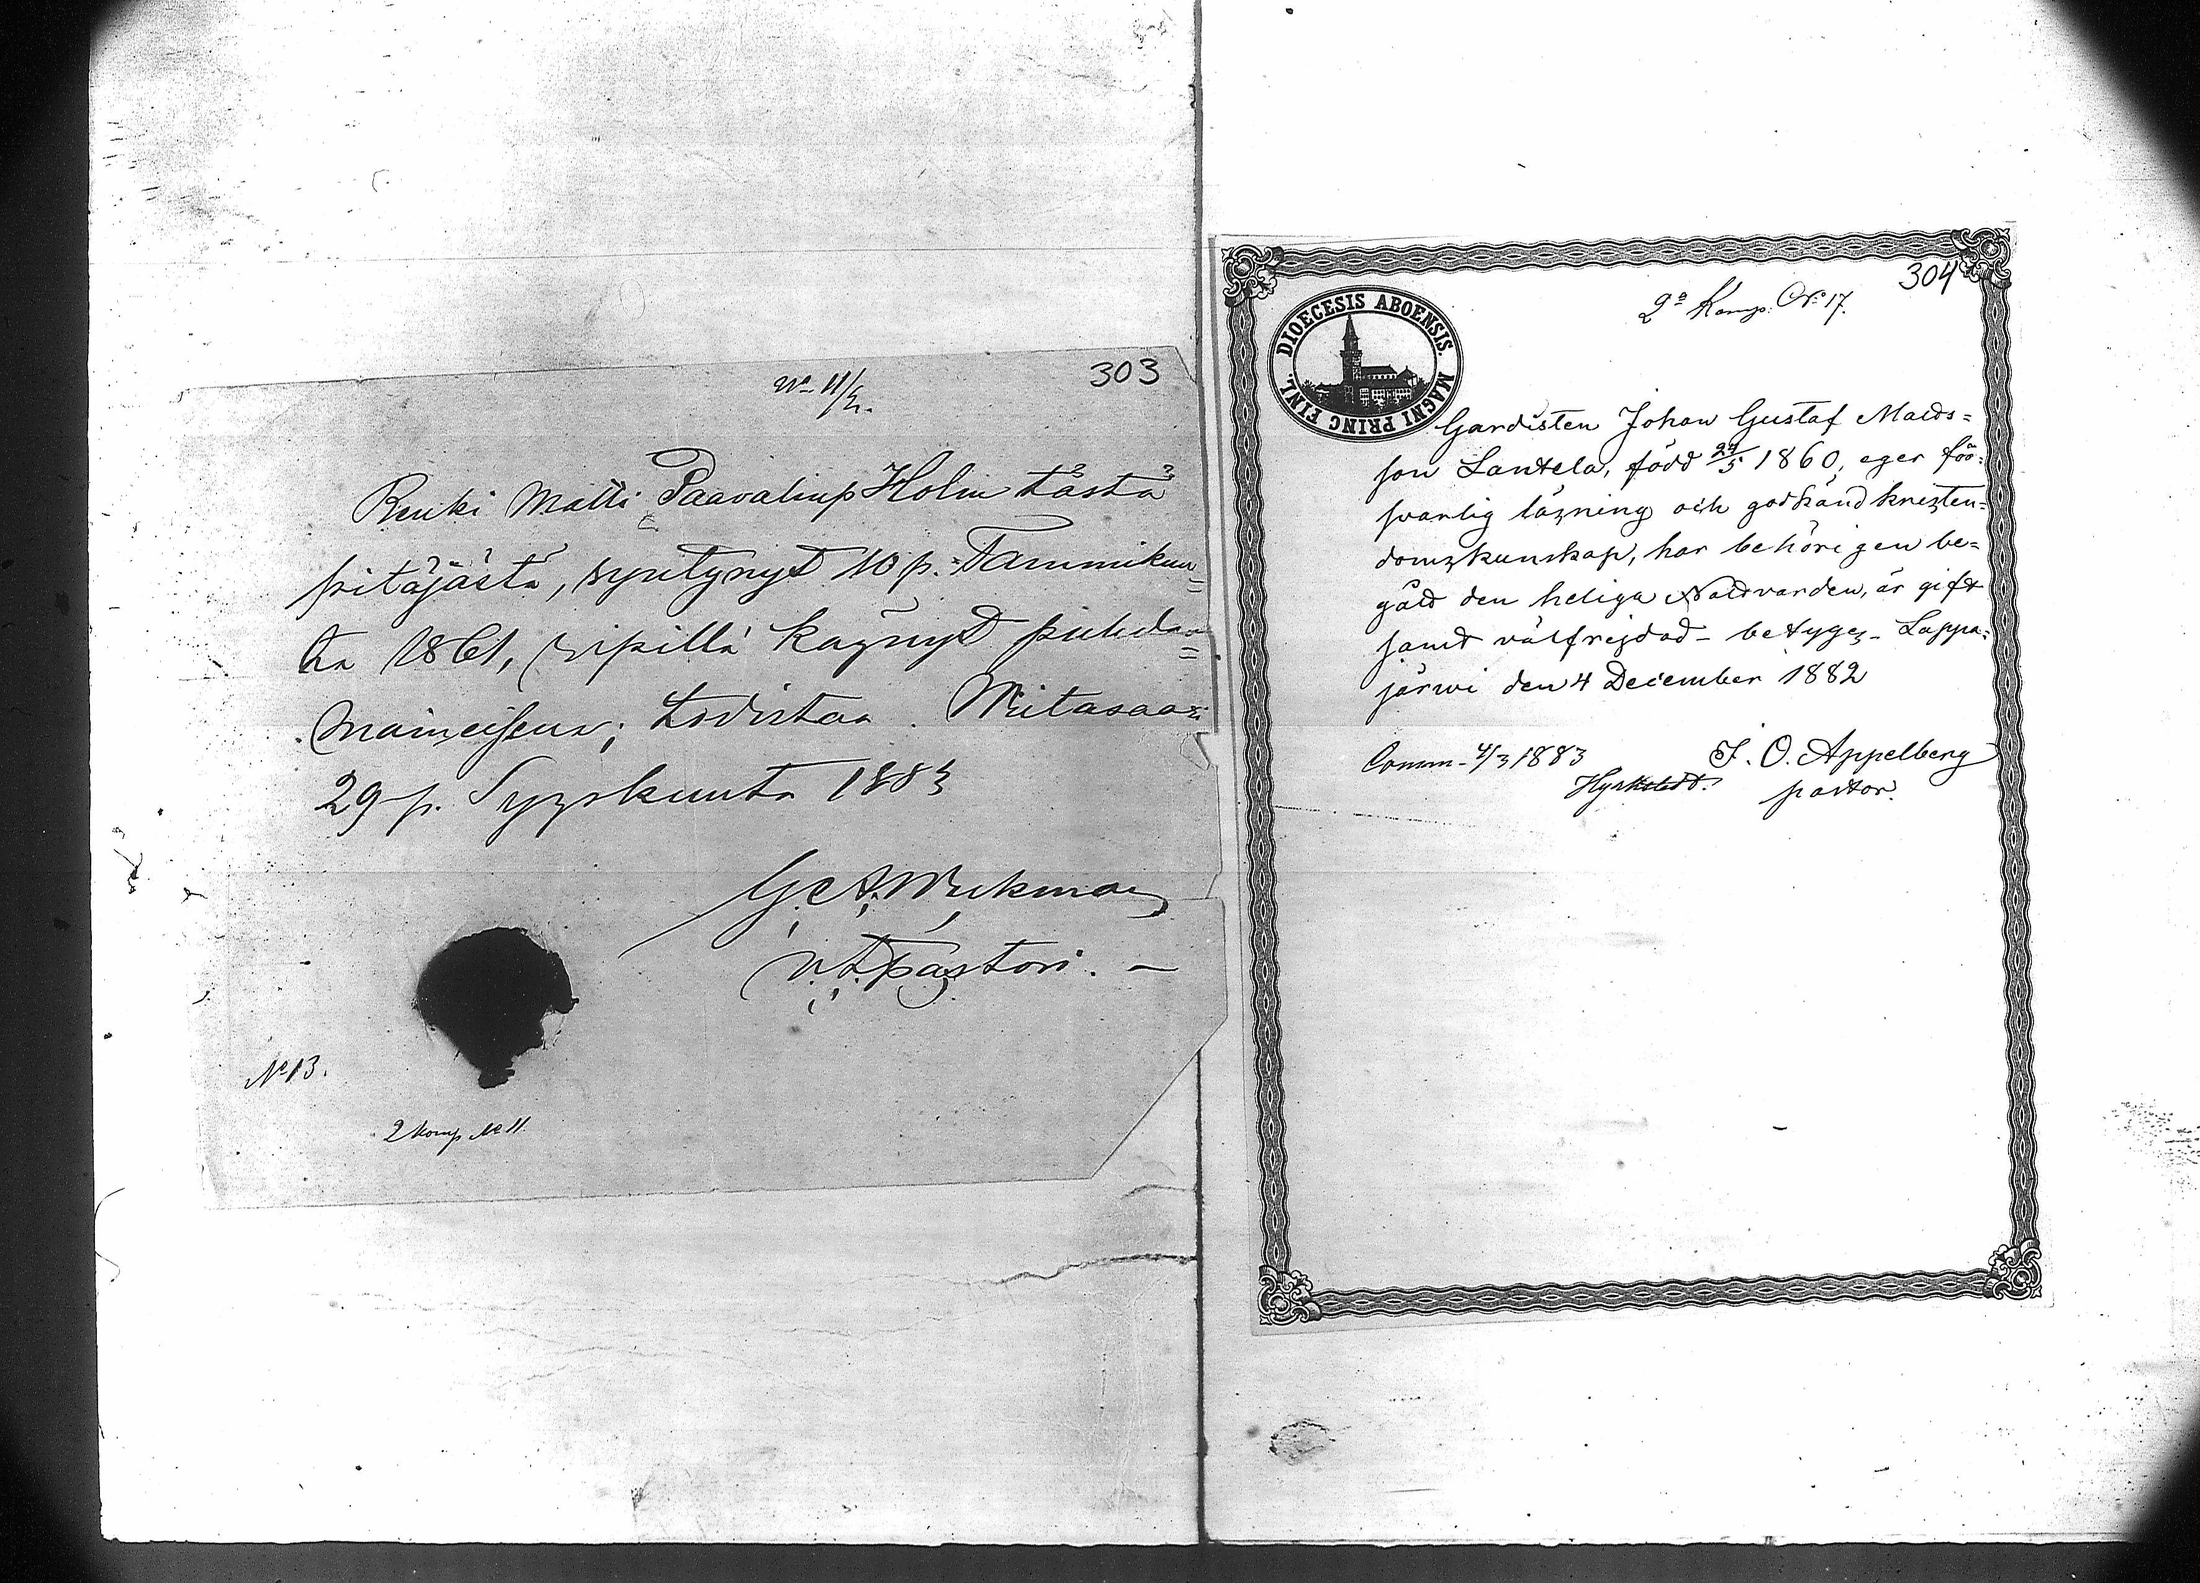 303
No 11/2.
Renki Matti Paavalinp Holm tästä
pitäjästä, syntynyt 10 p. Tammikuu=
ta 1861, ripillä käynyt puhdas=
maineisena; todistaa. Wiitasaari
29 p. Syyskuuta 1883
G. A. Wickman
v.t. pastori. —
No 13.
2 Komp No 11.
304
2a Komp. No 17.
DIOECESIS ABOENSIS. MAGNI PRINC FINL.
Gardisten Johan Gustaf Matds=
son Lantela, född 24/5 1860, eger för=
svarlig läsning och godkänd kristen=
domskunskap, har behörigen be=
gått den heliga Nattvarden, är gift
samt välfrejdad – betygas – Lappa=
järwi den 4 December 1882
Comm. 4/3 1883
J. O. Appelberg
pastor.